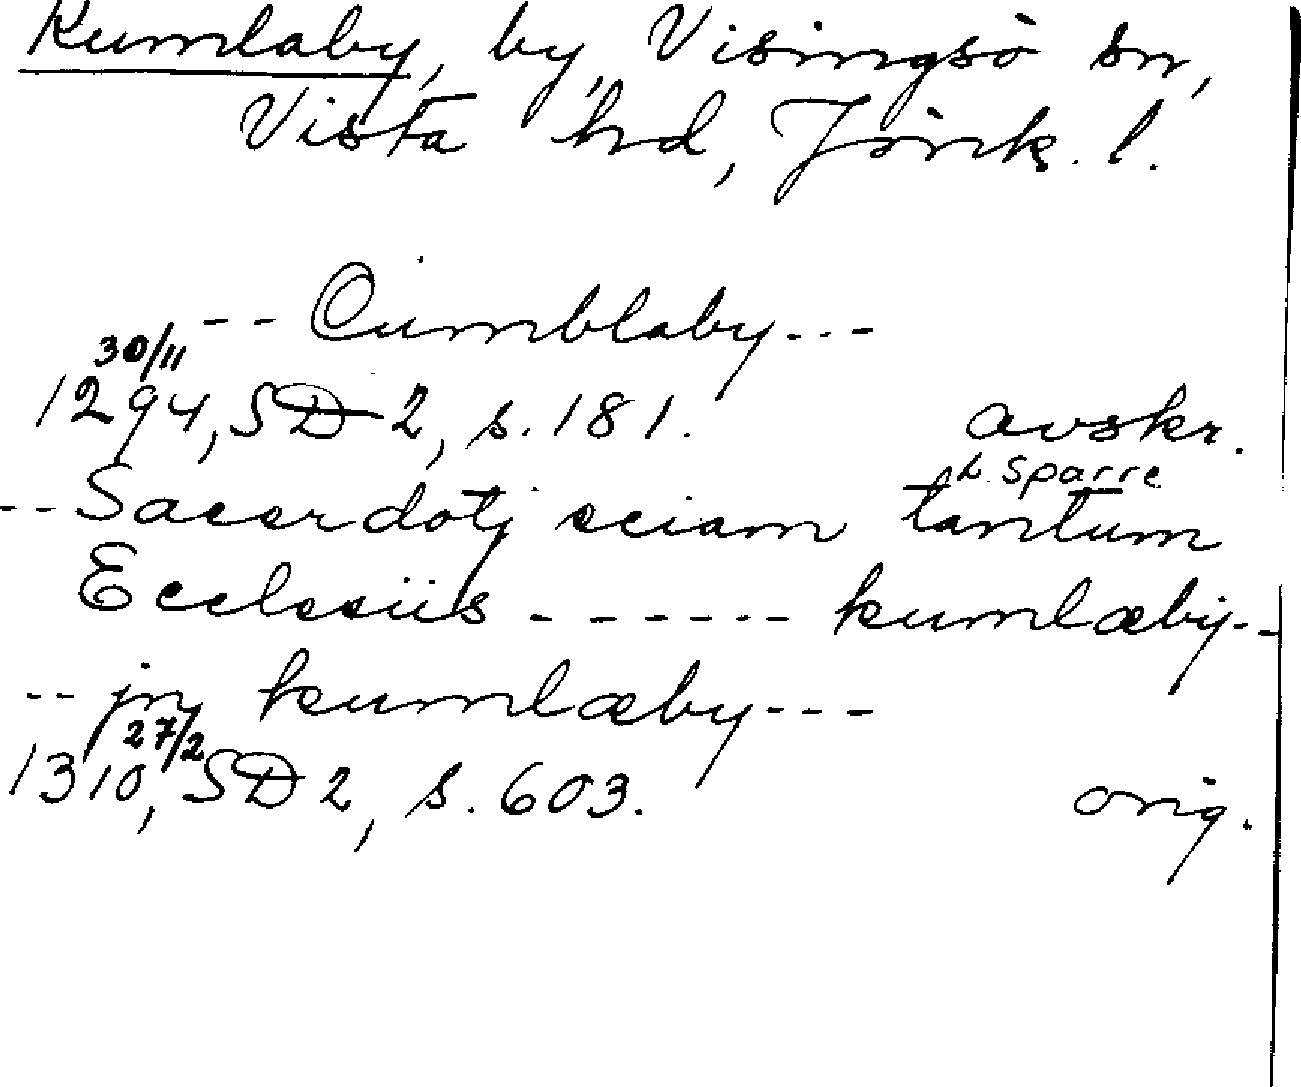 Kumlaby, by, Visingsö sn,
Vista hd, Jönk. l.
-- Cumblaby---
30/11
1294, SD 2, s. 181. avskr.
h. Sparre
-- Sacerdotj eciam tantum
Ecclesiis ------ kumlæby--
-- jn kumlæby---
27/2
1310, SD 2, s. 603. orig.